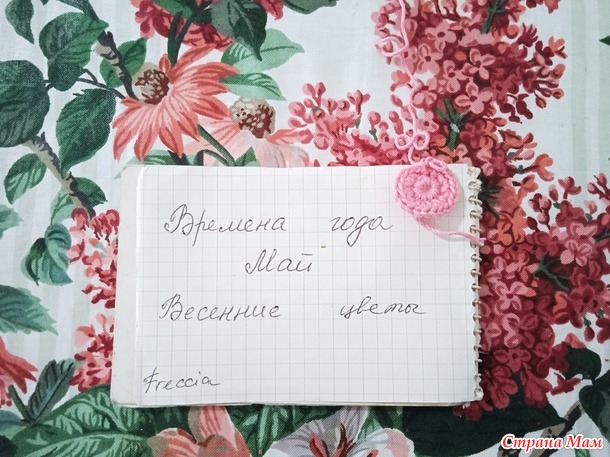 Времена года
Май
Весенние цветы
Freccia
Страна Мам